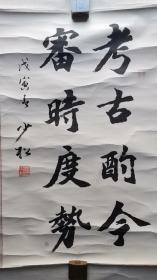 考古酌今
審時度勢
戊寅春少松